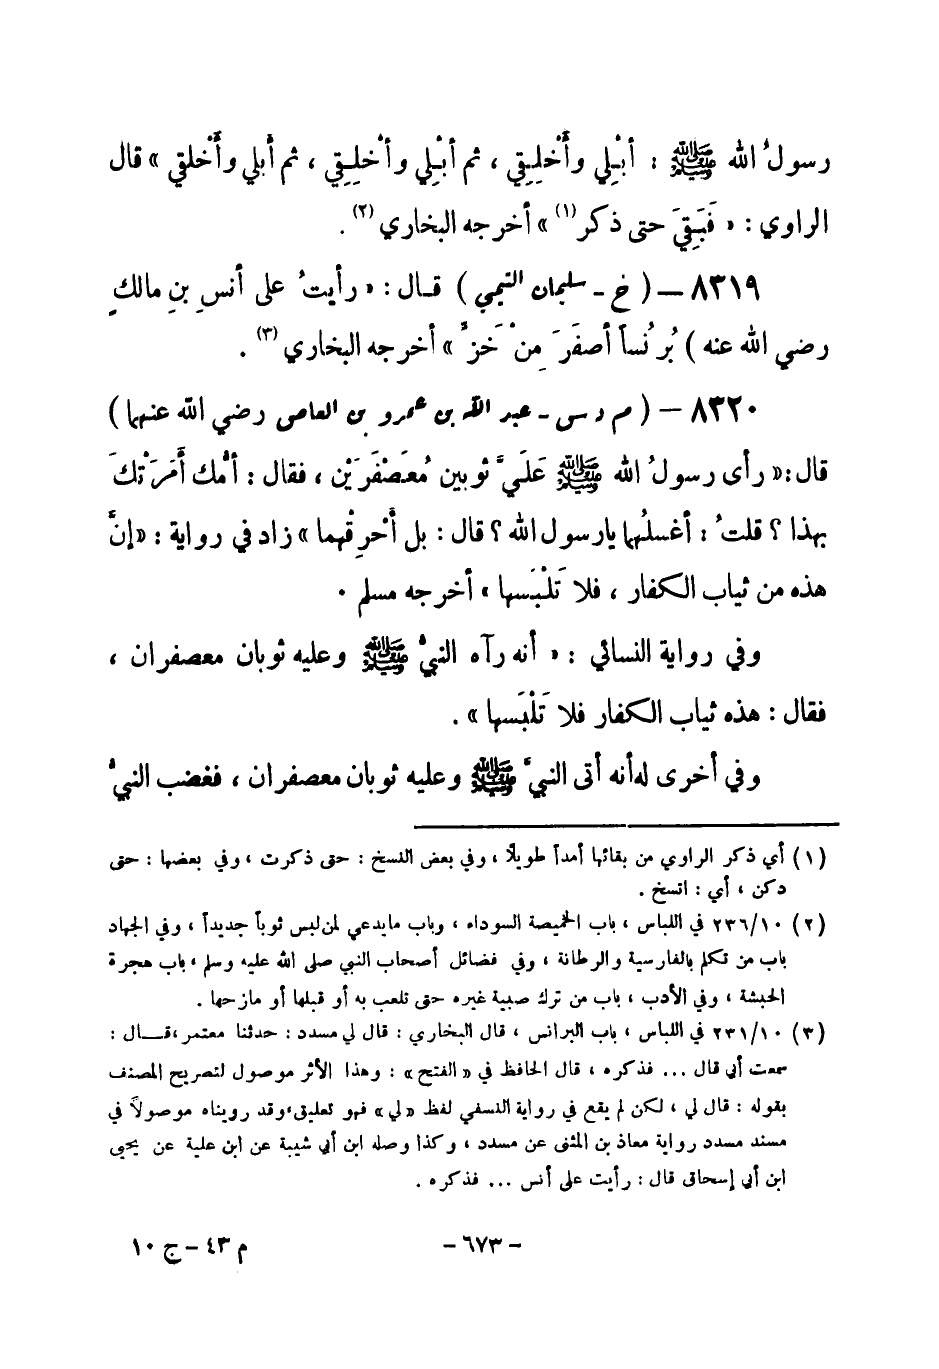 رسولُ الله ﷺ : أبْلِي وأَخْلِقِي ، ثم أبْلِي وأخْلِقِي ، ثم أبلي وأَخْلقي » قال
الراوي : « فَبَقِيَ حتى ذكر (١) » أخرجه البخاري (٢) .
٨٣١٩ – ( خ - سليمان التيمي ) قال : « رأيتُ على أنسِ بنِ مالكٍ
رضي الله عنه ) بُرْنُساً أصفَرَ مِنْ خَزٍّ » أخرجه البخاري (٣) .
٨٣٢٠ – ( م د س - عبد الله بن عمرو بن العاص رضي الله عنهما )
قال : « رأى رسولُ الله ﷺ عَلَيَّ ثوبين مُعَصْفَرَيْن ، فقال : أمُّك أَمَرَتْكَ
بهذا ؟ قلتُ : أغسلُهما يارسول الله ؟ قال : بل أَحْرِقْهما » زاد في رواية : « إنَّ
هذه من ثياب الكفار ، فلا تَلْبَسها » أخرجه مسلم .
وفي رواية النسائي : « أنه رآه النبيُّ ﷺ وعليه ثوبان معصفران ،
فقال : هذه ثياب الكفار فلا تَلْبَسها » .
وفي أخرى له أنه أتى النبيَّ ﷺ وعليه ثوبان معصفران ، فغضب النبيُّ
(١) أي ذكر الراوي من بقائها أمداً طويلاً ، وفي بعض النسخ : حتى ذكرت ، وفي بعضها : حتى
دكن ، أي : اتسخ .
(٢) ٢٣٦/١٠ في اللباس ، باب الخميصة السوداء ، وباب مايدعي لمن لبس ثوباً جديداً ، وفي الجهاد
باب من تكلم بالفارسية والرطانة ، وفي فضائل أصحاب النبي صلى الله عليه وسلم ، باب هجرة
الحبشة ، وفي الأدب ، باب من ترك صبية غيره حتى تلعب به أو قبلها أو مازحها .
(٣) ٢٣١/١٠ في اللباس ، باب البرانس ، قال البخاري : قال لي مسدد : حدثنا معتمر ، قال :
سمعت أبي قال ... فذكره ، قال الحافظ في « الفتح » : وهذا الأثر موصول لتصريح المصنف
بقوله : قال لي ، لكن لم يقع في رواية النسفي لفظ « لي » فهو تعليق ، وقد رويناه موصولاً في
مسند مسدد رواية معاذ بن المثنى عن مسدد ، وكذا وصله ابن أبي شيبة عن ابن علية عن يحيى
ابن أبي إسحاق قال : رأيت على أنس ... فذكره .
– ٦٧٣ –
م ٤٣ – ج ١٠